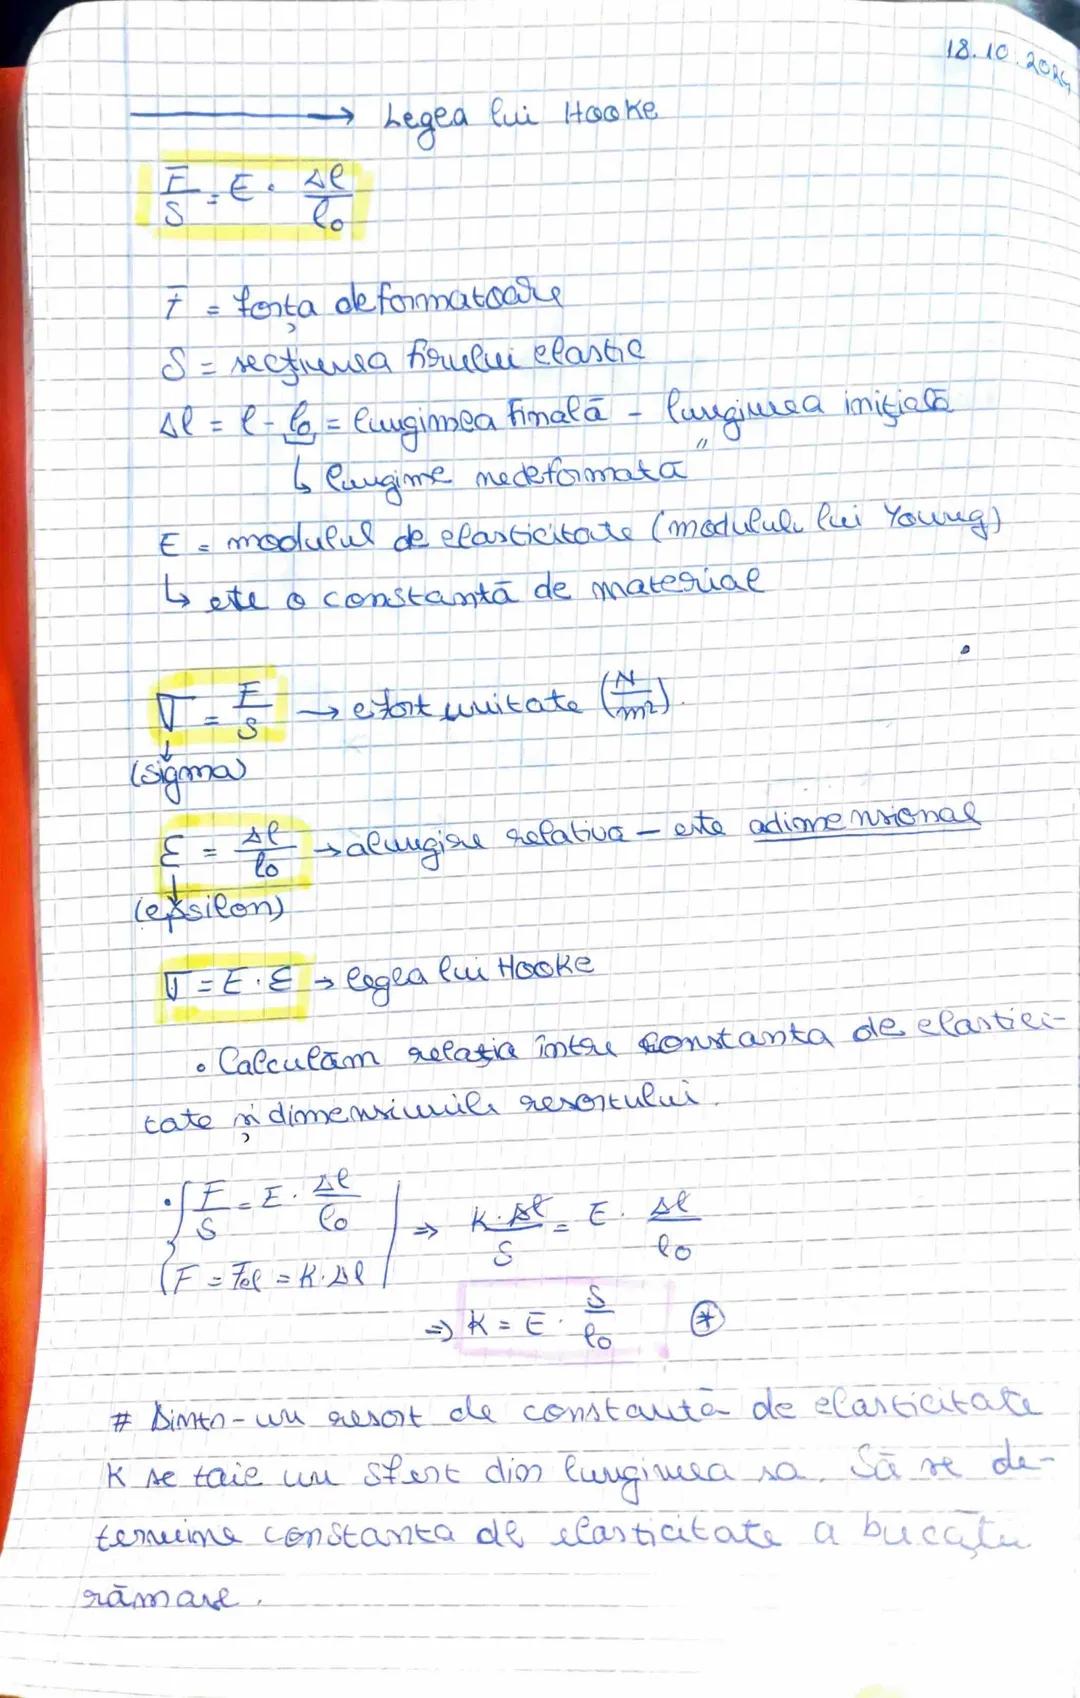 18.10.2024
→ Legea lui Hooke
F/S = E · Δl/l₀
F = forța deformatoare
S = secțiunea firului elastic
Δl = l - l₀ = lungimea finală - lungimea inițială
↳ lungime nedeformată
E = modulul de elasticitate (modulul lui Young)
↳ este o constantă de material
σ = F/S → efort unitate (N/m²).
(sigma)
ε = Δl/l₀ → alungire relativa - este adimensional
(epsilon)
σ = E · ε → legea lui Hooke
• Calculăm relația între constanta de elastici-
tate și dimensiunile resortului.
• { F/S = E · Δl/l₀
{ F = Fel = K·Δl | ⇒ K·Δl/S = E · Δl/l₀
⇒ K = E · S/l₀ (*)
# Dintr-un resort de constantă de elasticitate
K se taie un sfert din lungimea sa. Să se de-
termine constanta de elasticitate a bucății
rămase.